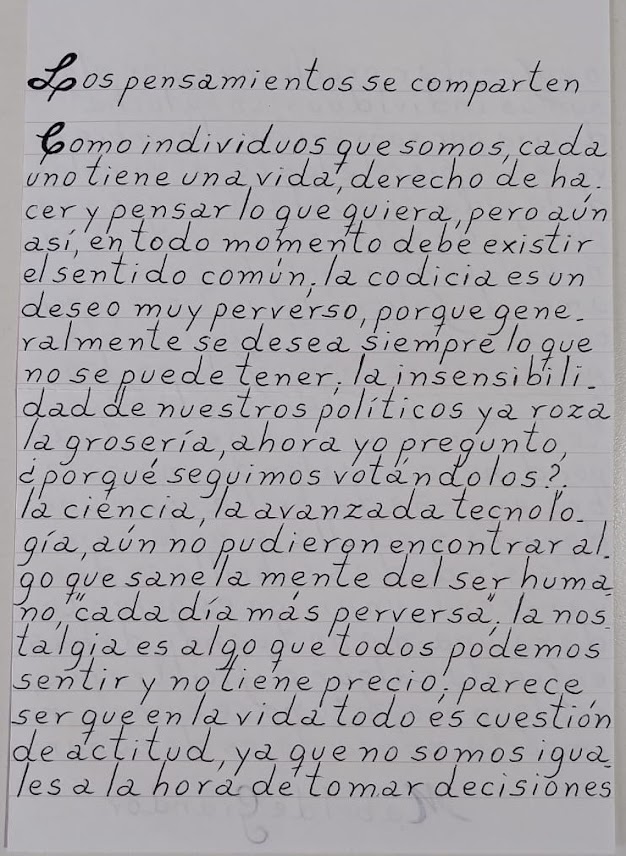 Los pensamientos se comparten
Como individuos que somos, cada
uno tiene una vida, derecho de ha-
cer y pensar lo que quiera, pero aún
así, en todo momento debe existir
el sentido común; la codicia es un
deseo muy perverso, porque gene-
ralmente se desea siempre lo que
no se puede tener; la insensibili-
dad de nuestros políticos ya roza
la grosería, ahora yo pregunto,
¿porqué seguimos votándolos?.
la ciencia, la avanzada tecnolo-
gía, aún no pudieron encontrar al-
go que sane la mente del ser huma-
no, "cada día más perversa"; la nos-
talgia es algo que todos podemos
sentir y no tiene precio; parece
ser que en la vida todo es cuestión
de actitud, ya que no somos igua-
les a la hora de tomar decisiones